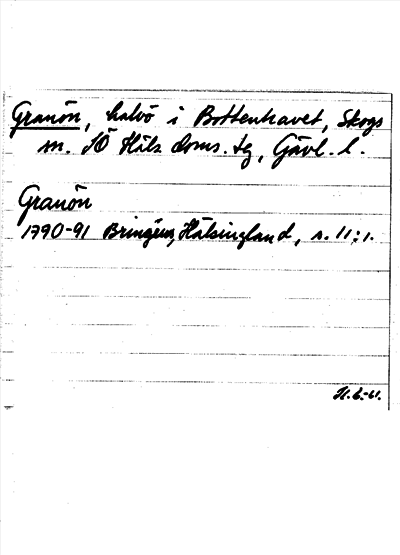 Granön, halvö i Bottenhavet, Skogs
sn. SÖ Häls. doms. tg, Gävl. l.
Granön
1790-91 Bringéus, Hälsingland, s. 11:1.